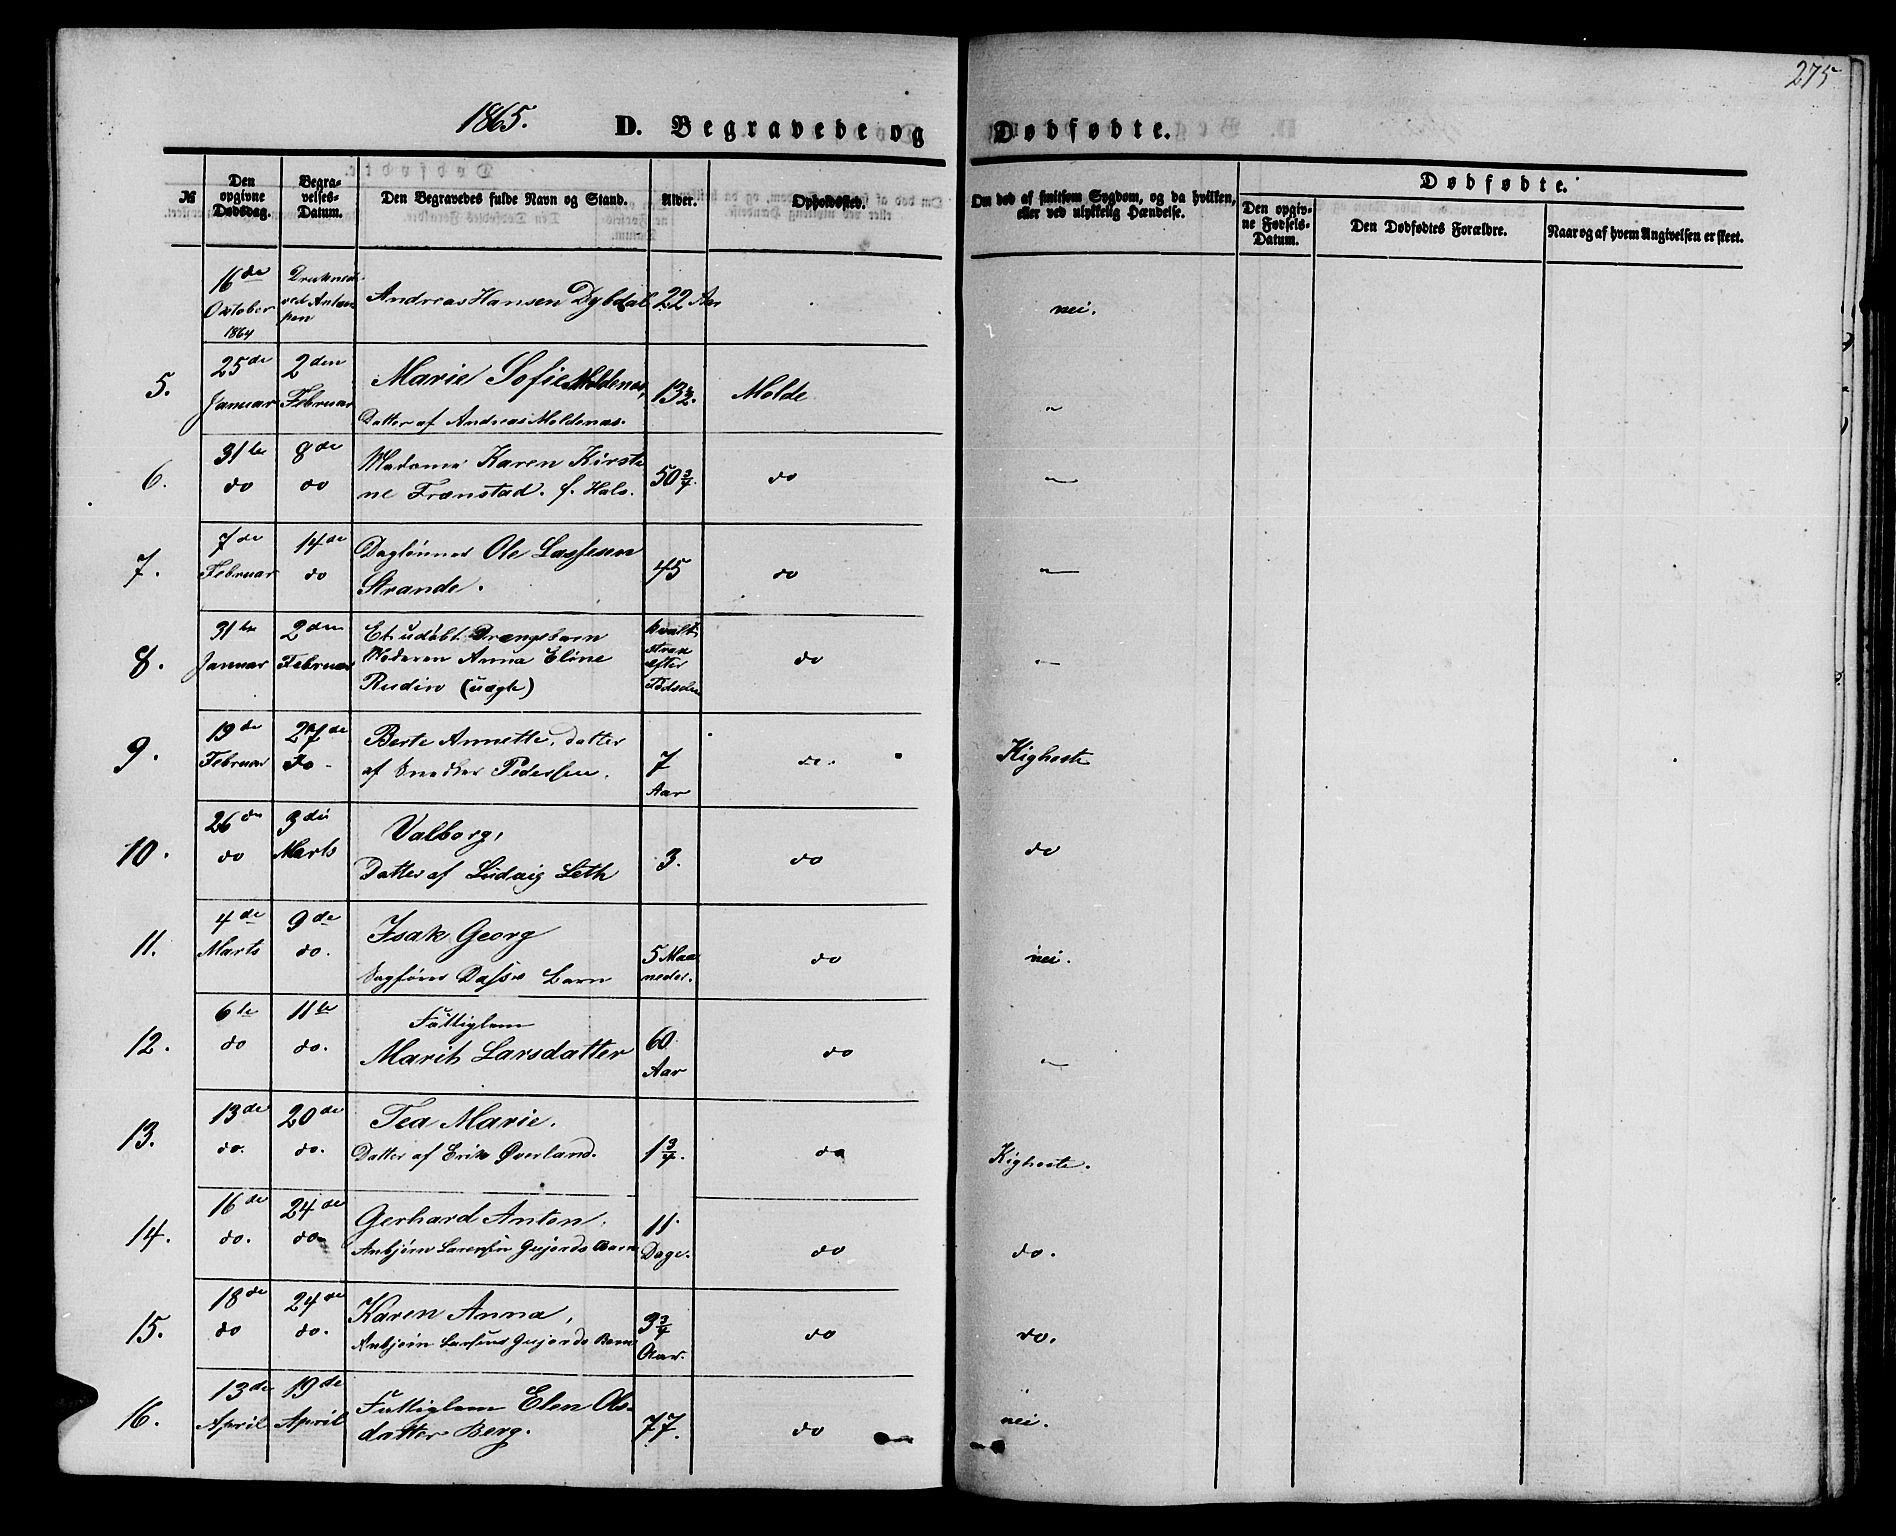 275
1865. D. Begravede og Dødfødte.
№ Den opgivne Dødsdag. Begravelses-Datum. Den Begravedes fulde Navn og Stand. Alder. Opholdssted. Om død af smitsom Sygdom, og da hvilken, eller ved ulykkelig Hændelse. Dødfødte.
Den opgivne Fødsels-Datum. Den Dødfødtes Forældre. Naar og af hvem Angivelsen er skeet.
16de Oktober 1864 Druknet ved Antwerpen Andreas Hansen Dybdal 22 Aar nei.
5. 25de Januar 2den Februar Marie Sofie Moldenæs, 13 1/2. Molde "
Datter af Andreas Moldenæs.
6. 31te do 8de do Madame Karen Kirsti 50 3/4. do "
ne Frænstad. f. Hals.
7. 7de Februar 14de do Daglønner Ole Lassesen 45 do "
Strande.
8. 31te Januar 2den Februar Et udøbt Drengebarn kvalt strax efter Fødselen do "
Moderen Anna Eline
Rudin (uægte)
9. 19de Februar 27de do Berte Annette, datter 7 Aar do. Kighoste
af Snedker Pedersen.
10. 26de do 3die Marts Valborg, 3. do do
Datter af Ludvig Leth
11. 4de Marts 9de do. Isak Georg 5 Maaneder. do nei.
Sagfører Dasses Barn
12. 6te do 11te do. Fattiglem 60 Aar do "
Marit Larsdatter
13. 13de do. 20de do. Tea Marie. 1 3/4. do Kighoste.
Datter af Erik Øverland.
14. 16de do. 24de do Gerhard Anton, 11 Dage. do do.
Anbjørn Larensen Gujords Barn
15. 18de do 24de do. Karen Anna, 3 3/4 Aar. do do.
Anbjørn Larsens Gujords Barn
16. 13de April 19de April Fattiglem Elen Ols- 77. do nei.
datter Berg.